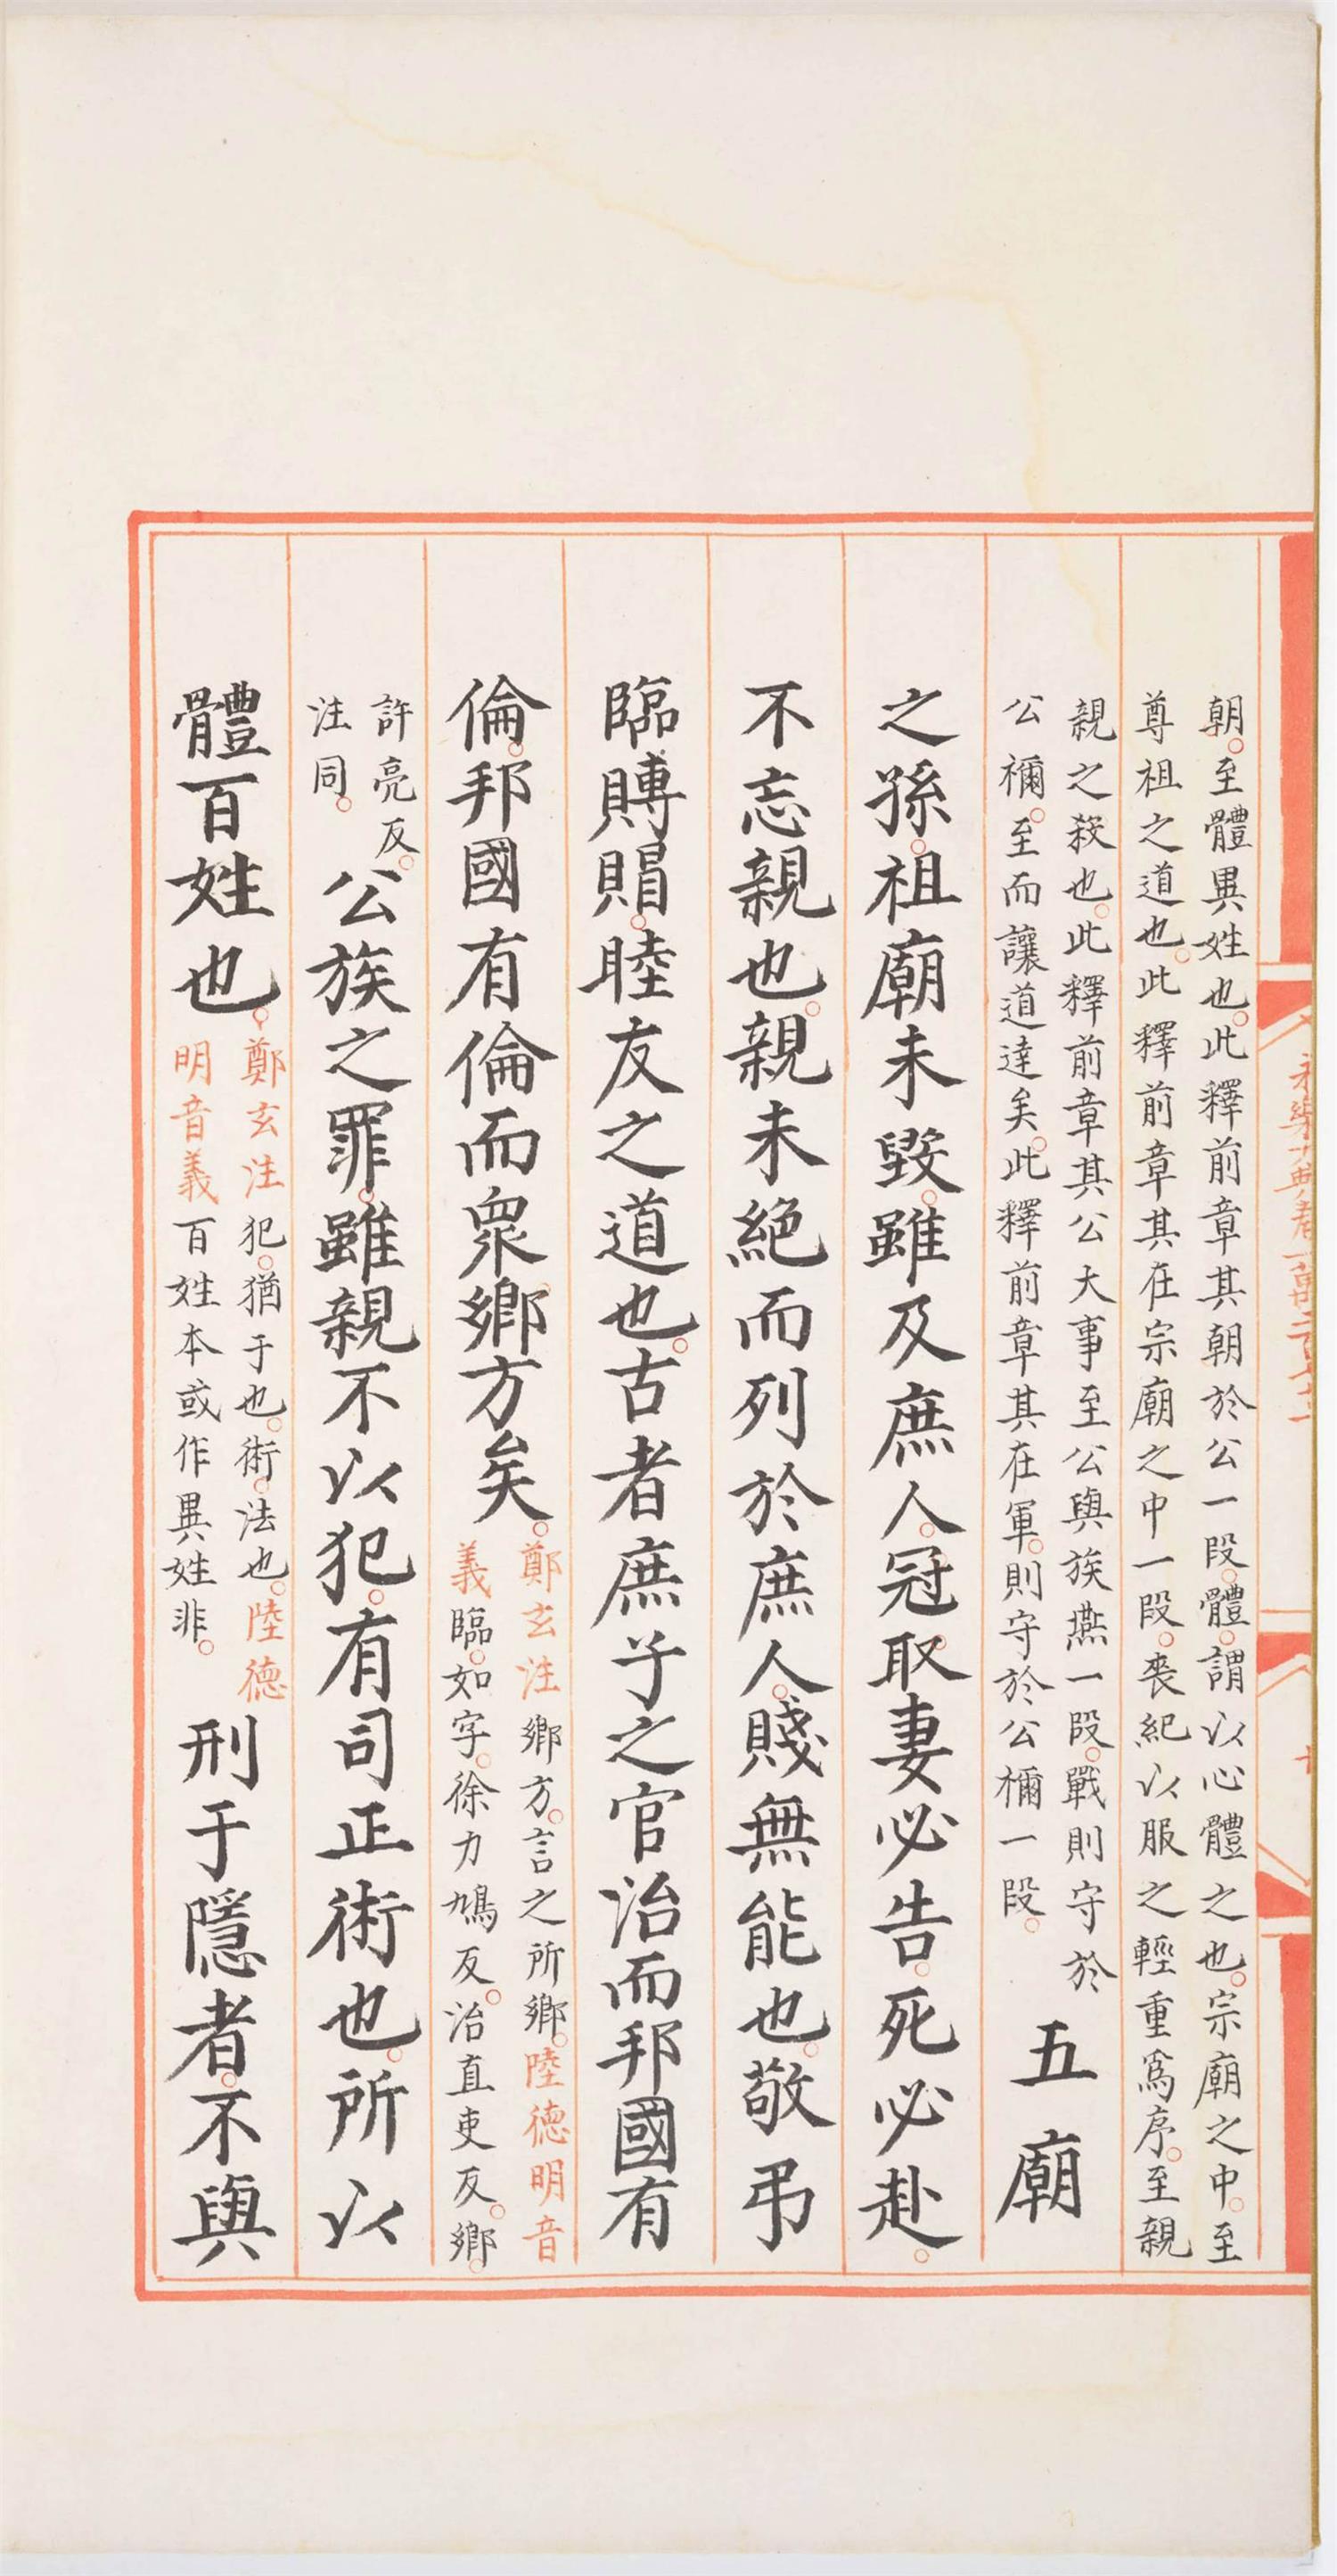 朝至體異姓也此釋前章其朝於公一段體謂以心體之也宗廟之中至
尊祖之道也此釋前章其在宗廟之中一段喪紀以服之輕重爲序至親
親之殺也此釋前章其公大事至公與族燕一段戰則守於
公禰至而讓道達矣此釋前章其在軍則守於公禰一段
五廟
之孫祖廟未毀雖及庶人冠取妻必告死必赴
不忘親也親未絕而列於庶人賤無能也敬弔
臨賻賵睦友之道也古者庶子之官治而邦國有
倫邦國有倫而衆鄉方矣
鄭玄注鄉方言之所鄉陸德明音
義臨如字徐力鴆反治直吏反鄉
許亮反
注同
公族之罪雖親不以犯有司正術也所以
體百姓也
鄭玄注犯猶于也術法也陸德
明音義百姓本或作異姓非
刑于隱者不與